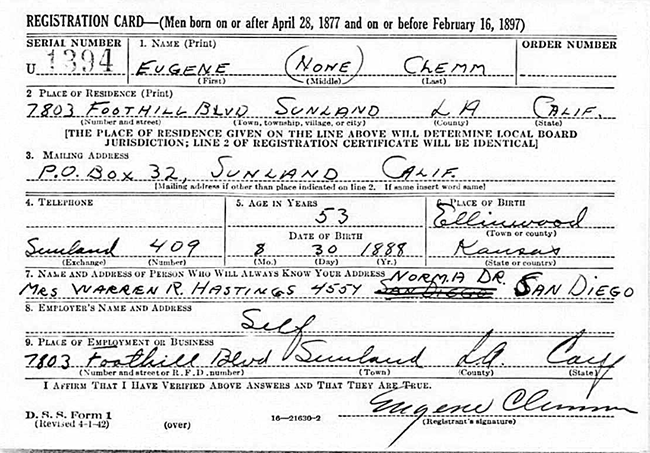 REGISTRATION CARD—(Men born on or after April 28, 1877 and on or before February 16, 1897)
SERIAL NUMBER 1. NAME (Print) ORDER NUMBER
U 1394 EUGENE (NONE) CLEMM
(First) (Middle) (Last)
2 PLACE OF RESIDENCE (Print)
7803 FOOTHILL BLVD SUNLAND LA CALIF.
(Number and street) (Town, township, village, or city) (County) (State)
[THE PLACE OF RESIDENCE GIVEN ON THE LINE ABOVE WILL DETERMINE LOCAL BOARD
JURISDICTION; LINE 2 OF REGISTRATION CERTIFICATE WILL BE IDENTICAL]
3. MAILING ADDRESS
P.O. BOX 32, SUNLAND CALIF.
[Mailing address if other than place indicated on line 2. If same insert word same]
4. TELEPHONE 5. AGE IN YEARS 6. PLACE OF BIRTH
53 Ellinwood
DATE OF BIRTH (Town or county)
Sunland 409 8 30 1888 Kansas
(Exchange) (Number) (Mo.) (Day) (Yr.) (State or country)
7. NAME AND ADDRESS OF PERSON WHO WILL ALWAYS KNOW YOUR ADDRESS NORMA DR.
MRS WARREN R. HASTINGS 4554 SAN DIEGO SAN DIEGO
8. EMPLOYER'S NAME AND ADDRESS
Self
9. PLACE OF EMPLOYMENT OR BUSINESS
7803 Foothill Blvd Sunland LA. Calif
(Number and street or R. F. D. number) (Town) (County) (State)
I AFFIRM THAT I HAVE VERIFIED ABOVE ANSWERS AND THAT THEY ARE TRUE.
Eugene Clemm
D. S. S. Form 1
(Revised 4-1-42) (over) 16—21630-2 (Registrant's signature)